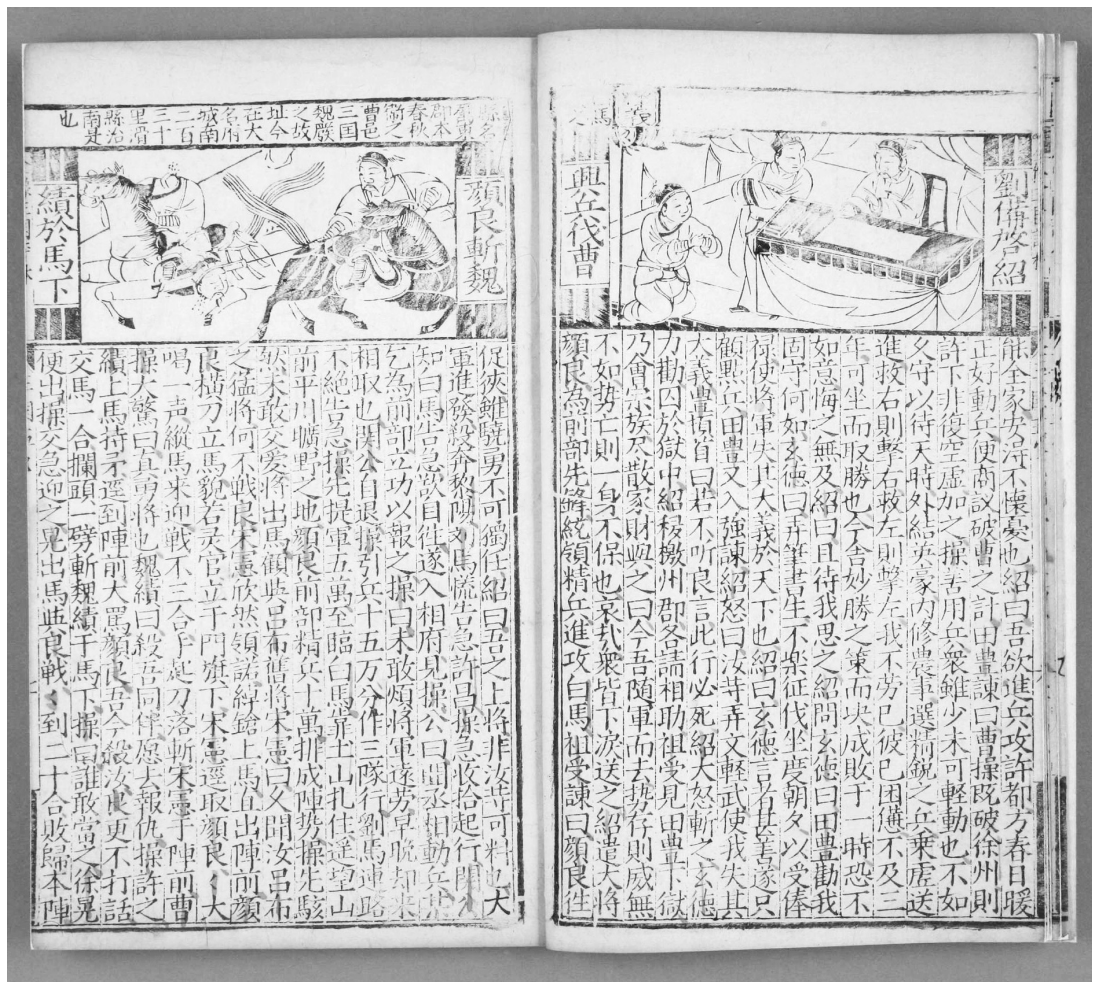 劉備答紹
興兵伐曹
能全家安汗不懷憂也紹曰吾欲進兵攻許都方春日暖
正好動兵便商議破曹之計田豊諫曰曹操既破徐州則
許下非復空虛加之操善用兵衆雖少未可輕動也不如
久守以待天時外結英豪內修農事選精銳之兵乘虛送
進救右則擊右救左則擊左我不劳已彼已困憊不及三
年可坐而取勝也今舍妙勝之策而决成敗于一時恐不
如意悔之無及紹曰且待我思之紹問玄德曰田豊勸我
固守何如玄德曰弄筆書生不楽征伐坐度朝夕以受俸
禄使將軍失其大義於天下也紹曰玄德言者甚善遂只
顧點兵田豊又入強諫紹怒曰汝等弄文軽武使我失其
大義豊頓首曰若不听良言此行必死紹大怒斬之玄德
力勸囚於獄中紹移檄州郡各請相助祖受見田豊下獄
乃會宗族尽散家財與之曰今吾随軍而去势存則威無
不如势亡則一身不保也哀哉衆皆下淚送之紹遣大將
顔良為前部先鋒統領精兵進攻白馬祖受諫曰顔良性
縣名
春秋
衛之
曹邑
三国
魏朝
之故
址今
在大
名府
城南
二百
三十
里滑
縣治
南是
也
顔良斬魏
績於馬下
促狹雖驍勇不可獨任紹曰吾之上將非汝等可料也大
軍進發殺奔黎陽刘馬慌告急許昌操急收拾起行関公
知曰馬告急欲自往遂入相府見操公曰聞丞相動兵某
乞為前部立功以報之操曰未敢煩將軍逺劳早晚却來
相取也関公自退操引兵十五万分作三隊行劉馬連路
不絶告急操先提軍五萬至臨白馬靠土山扎住遥望山
前平川曠野之地顔良前部精兵十萬排成陣势操先駭
然未敢交爱將出馬顧與吕布舊將宋憲曰久聞汝吕布
之猛將何不戰良宋憲欣然領諾綽鎗上馬直出陣前顔
良橫刀立馬貌若灵官立于門旗下宋憲逕取顔良〻大
喝一声縱馬来迎戰不三合手起刀落斬宋憲于陣前曹
操大驚曰真勇將也魏績曰殺吾同伴愿去報仇操許之
績上馬持矛逕到陣前大罵顔良吾今殺汝也更不打話
交馬一合攔頭一劈斬魏績于馬下操曰誰敢當之徐晃
便出操父急迎之晃出馬與良戰〻到二十合敗歸本陣